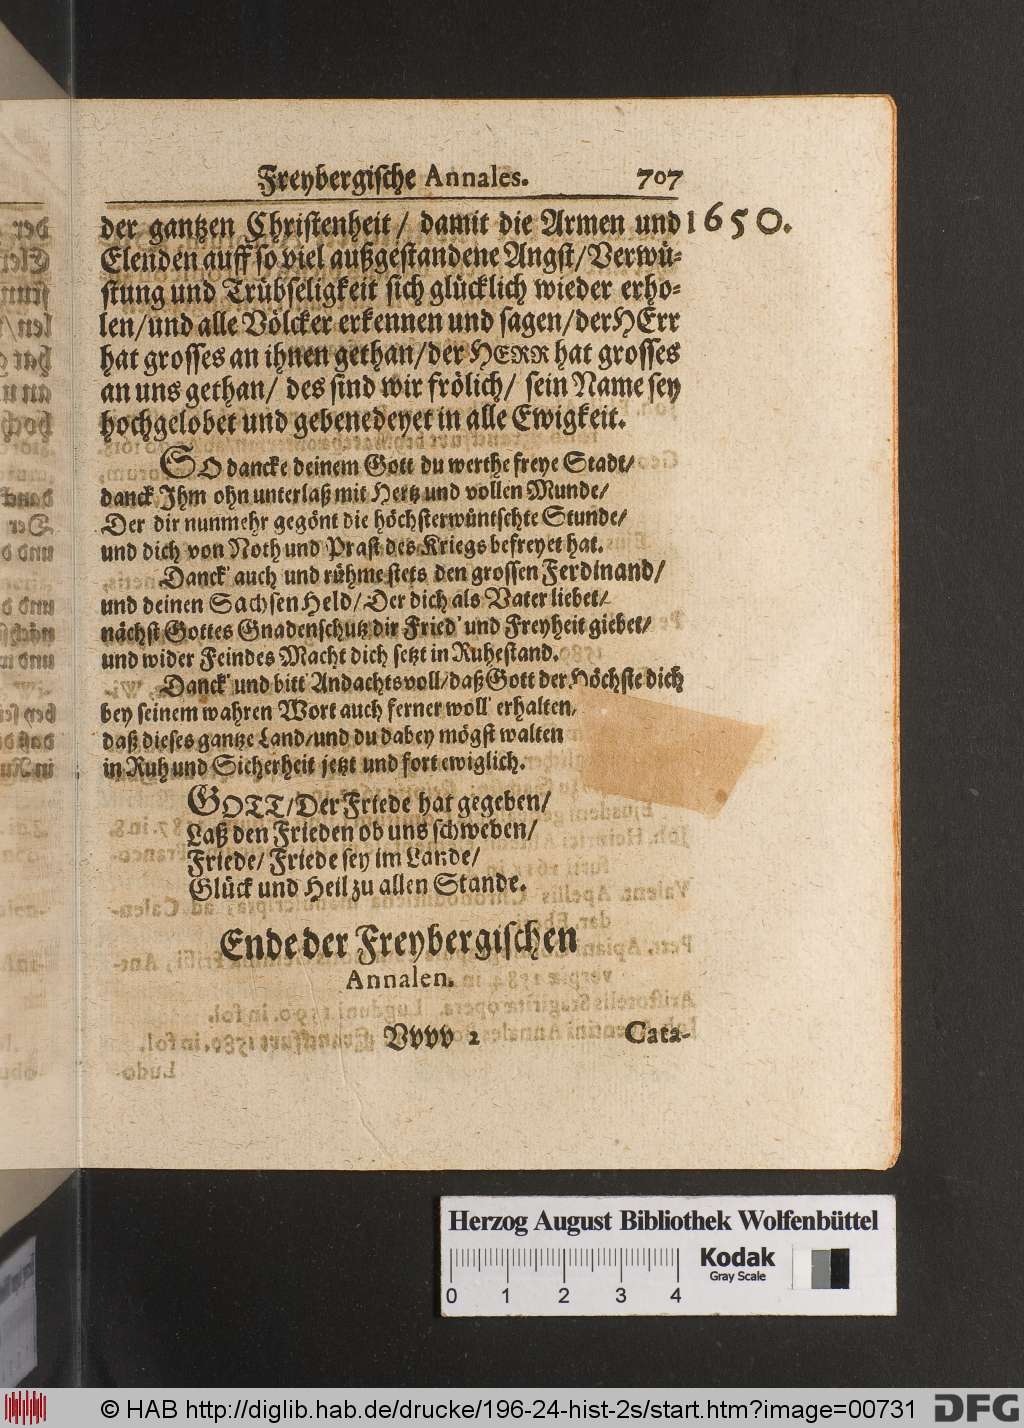 Freybergische Annales. 707
der gantzen Christenheit / damit die Armen und 1650.
Elenden auff so viel außgestandene Angst/Verwü-
stung und Trübseligkeit sich glücklich wieder erho-
len/und alle Völcker erkennen und sagen/der HErr
hat grosses an ihnen gethan/der HERR hat grosses
an uns gethan/ des sind wir frölich/ sein Name sey
hochgelobet und gebenedeyet in alle Ewigkeit.
SO dancke deinem Gott du werthe freye Stadt/
danck Ihm ohn unterlaß mit Hertz und vollen Munde/
Der dir nunmehr gegönt die höchsterwüntschte Stunde/
und dich von Noth und Prast des Kriegs befreyet hat.
Danck' auch und rühme stets den grossen Ferdinand/
und deinen Sachsen Held/Der dich als Vater liebet/
nächst Gottes Gnadenschutz dir Fried' und Freyheit giebet/
und wider Feindes Macht dich setzt in Ruhestand.
Danck' und bitt' Andachtsvoll/daß Gott der Höchste dich
bey seinem wahren Wort auch ferner woll' erhalten/
daß dieses gantze Land/und du dabey mögst walten
in Ruh und Sicherheit jetzt und fort ewiglich.
GOTT/Der Friede hat gegeben/
Laß den Frieden ob uns schweben/
Friede/ Friede sey im Lande/
Glück und Heil zu allen Stande.
Ende der Freybergischen
Annalen.
Vvvv 2 Cata-
Herzog August Bibliothek Wolfenbüttel
Kodak
Gray Scale
0 1 2 3 4
© HAB http://diglib.hab.de/drucke/196-24-hist-2s/start.htm?image=00731
DFG